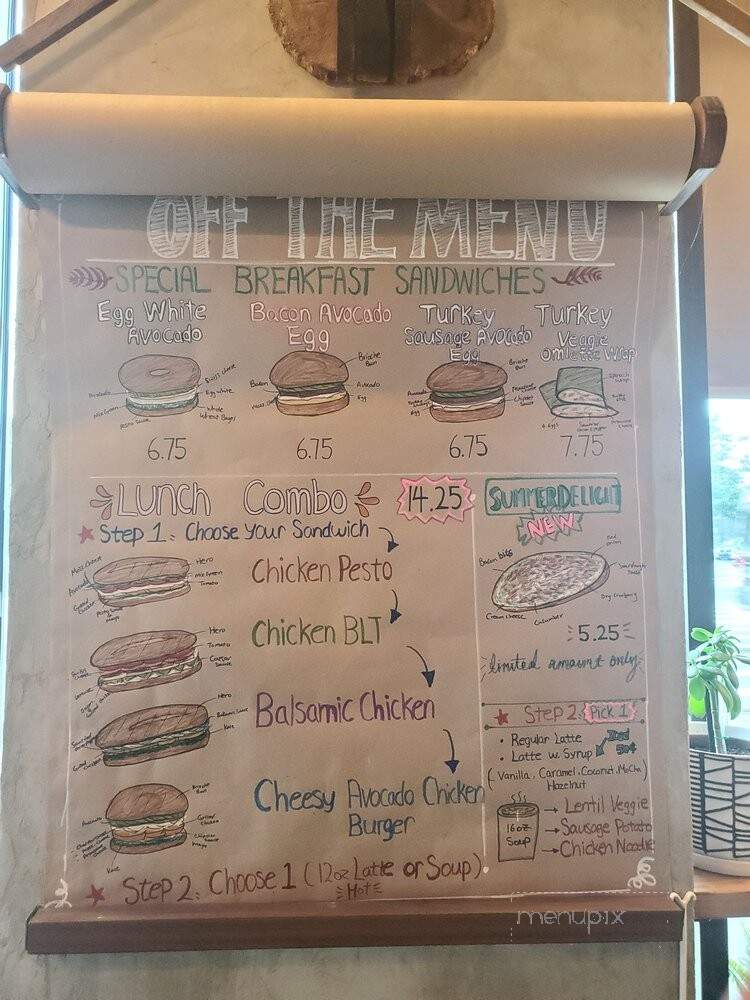 OFF THE MENU
SPECIAL BREAKFAST SANDWICHES
Egg White
Avocado
Swiss cheese
Avocado
Egg white
Mix Green
Whole
Wheat Bagel
Pesto Sauce
6.75
Bacon Avocado
Egg
Brioche
Bun
Bacon
Avocado
Egg
6.75
Turkey
Sausage Avocado
Egg
Brioche
Bun
Avocado
Chipotle
Sauce
Egg
6.75
Turkey
Veggie
Omlette Wrap
Spinach
Wrap
4 Eggs
7.75
Lunch Combo
14.25
★ Step 1: Choose Your Sandwich
Chicken Pesto
Hero
Mix Green
Tomato
Avocado
Grilled
Chicken
Mayo
Chicken BLT
Hero
Tomato
Caesar
Sauce
Balsamic Chicken
Hero
Balsamic Sauce
Kale
Grilled
Chicken
Cheesy Avocado Chicken
Burger
Brioche
Bun
Avocado
Grilled
Chicken
Chipotle
Mayo
Kale
★ Step 2: Choose 1 (12oz Latte or Soup).
Hot
SUMMER DELIGHT
NEW
Bacon bits
Red
onion
Sourdough
Toast
Dry Cranberry
Cream cheese
Cucumber
5.25
limited amount only
★ Step 2: Pick 1
• Regular Latte
• Latte w. Syrup
Iced
50¢
(Vanilla, Caramel, Coconut, Mocha)
Hazelnut
16oz
Soup
→ Lentil Veggie
→ Sausage Potato
→ Chicken Noodle
menupix